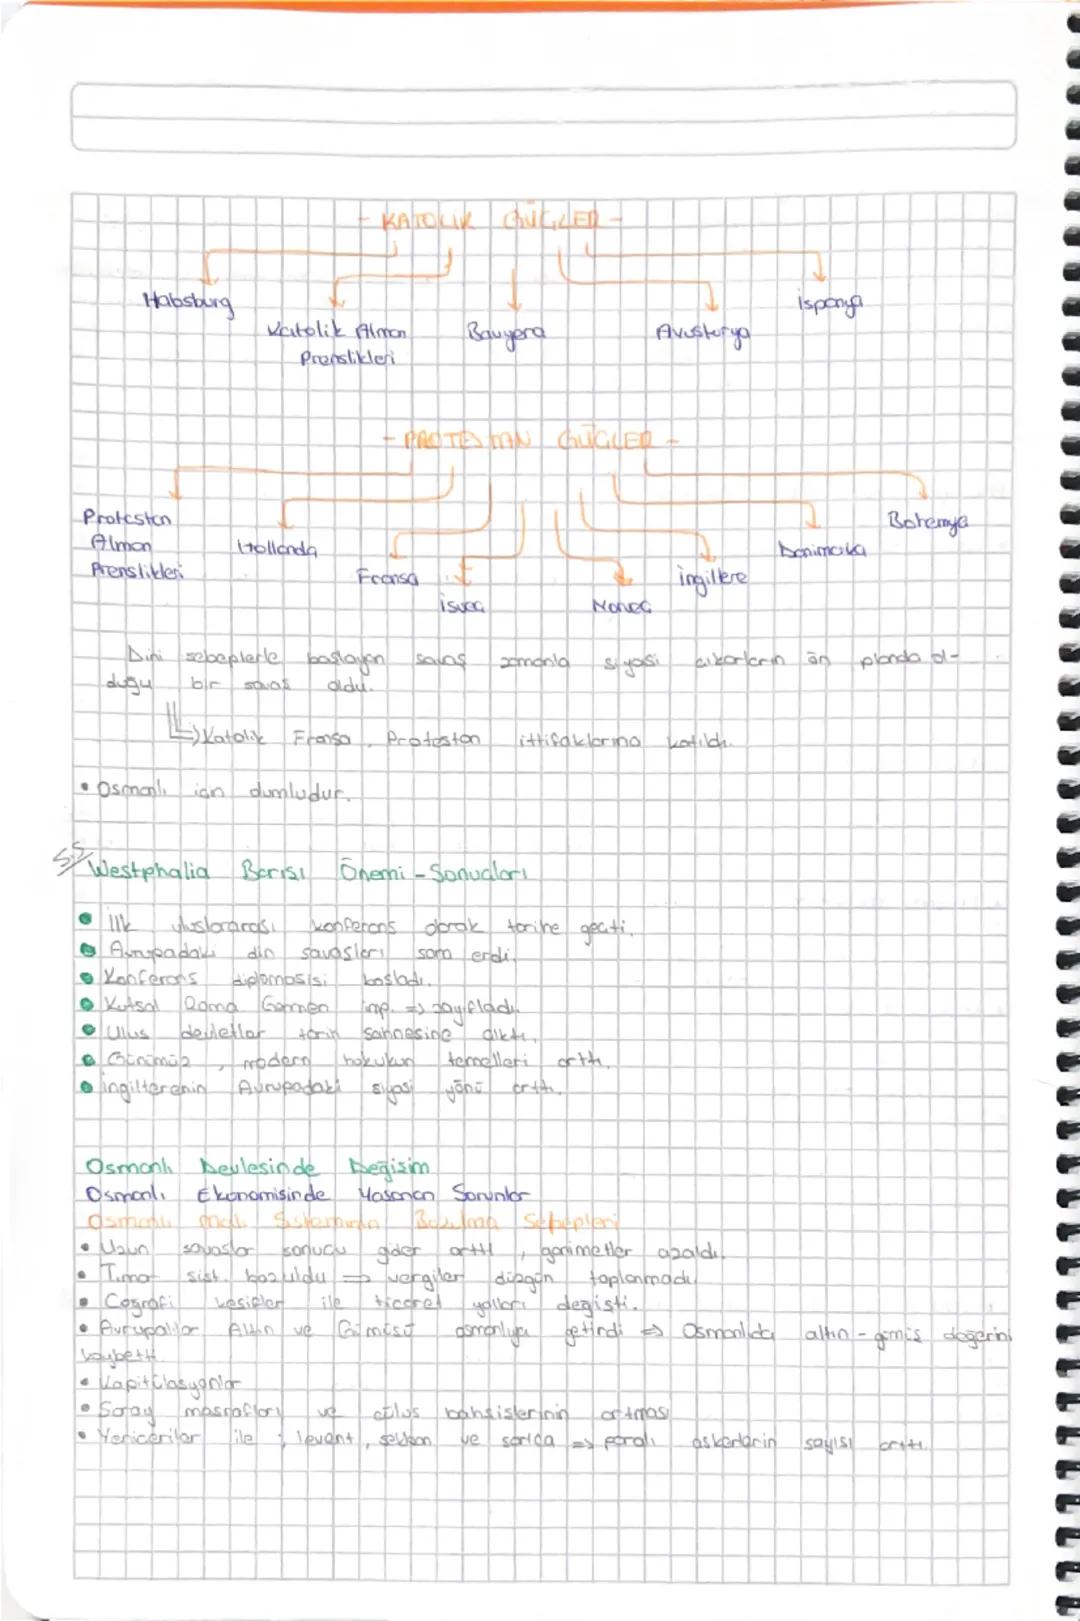 - KATOLIK GÜÇLER -
Habsburg
Katolik Alman
Prenslikleri
Bavyera
Avusturya
İspanya
- PROTESTAN GÜÇLER -
Protestan
Alman
Prenslikleri
Hollanda
Fransa
İsveç
Norveç
İngiltere
Danimarka
Bohemya
Dini sebeplerle başlayan savaş zamanla siyasi çıkarların ön planda ol-
duğu bir savaş oldu.
Katolik Fransa, Protestan ittifaklarına katıldı.
• Osmanlı için olumludur.
Westphalia Barışı Önemi - Sonuçları
• İlk uluslararası konferans olarak tarihe geçti.
• Avrupadaki din savaşları sona erdi.
• Konferans diplomasisi başladı.
• Kutsal Roma Germen imp. => zayıfladı.
• Ulus devletler tarih sahnesine çıktı.
• Günümüz, modern hukukun temelleri arttı.
• İngilterenin Avrupadaki siyasi yönü arttı.
Osmanlı Devlesinde Değişim
Osmanlı Ekonomisinde Yaşanan Sorunlar
Osmanlı Mali Sisteminin Bozulma Sebepleri
• Uzun savaşlar sonucu gider arttı, ganimetler azaldı.
• Tımar sist. bozuldu => vergiler düzgün toplanmadı.
• Coğrafi kesifler ile ticaret yolları değişti.
• Avrupalılar Altın ve Gümüşü osmanlıya getirdi => Osmanlıda altın - gümüş değerini
kaybetti.
• Kapitülasyonlar
• Saray masrafları ve cülus bahşişlerinin artması
• Yeniçeriler ile ; levent, sekban ve sarıca => paralı askerlerin sayısı arttı.